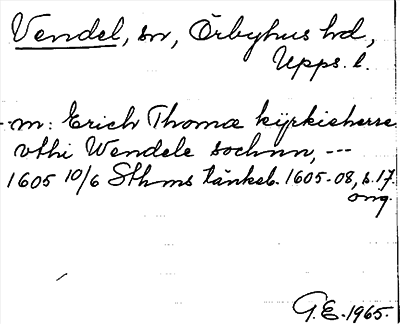 Vendel, sn, Örbyhus hd,
Upps. l.
m: Erich Thomæ kÿrkieherre
vthi Wendele sochnn, ---
1605 10/6 Sthms tänkeb. 1605-08, s. 17.
orig.
G.E. 1965.